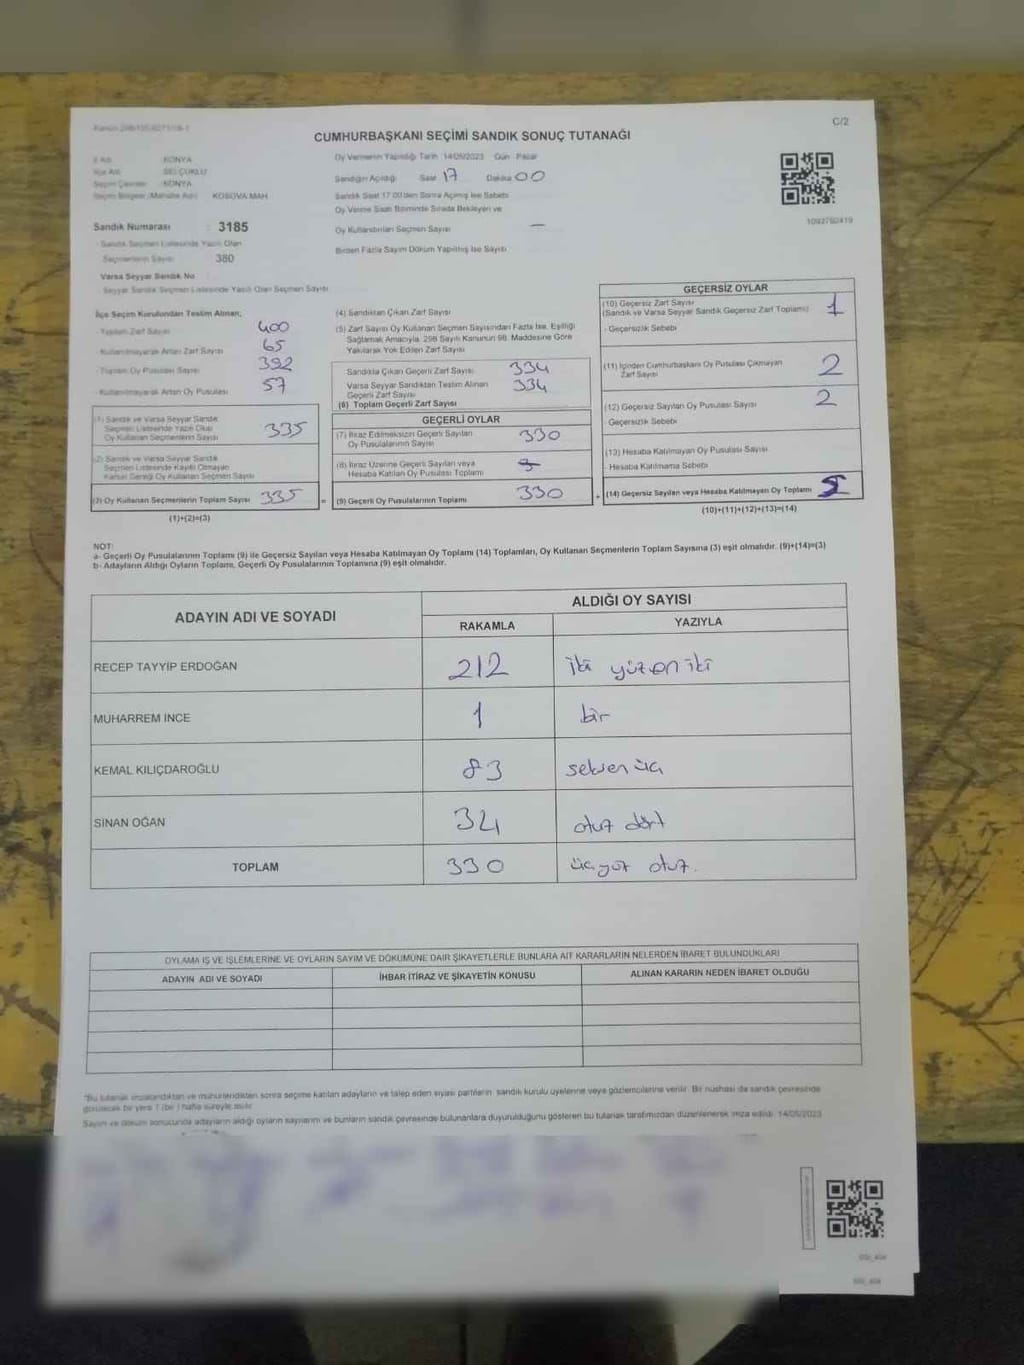 C/2
CUMHURBAŞKANI SEÇİMİ SANDIK SONUÇ TUTANAĞI
İl Adı : KONYA
İlçe Adı : SELÇUKLU
Seçim Çevresi : KONYA
Seçim Bölgesi (Mahalle Adı) : KOSOVA MAH
Sandık Numarası : 3185
Sandık Seçmen Listesinde Yazılı Olan
Seçmenlerin Sayısı : 380
Varsa Seyyar Sandık No
Seyyar Sandık Seçmen Listesinde Yazılı Olan Seçmen Sayısı
Oy Vermenin Yapıldığı Tarih 14/05/2023 Gün : Pazar
Sandığın Açıldığı Saat 17 Dakika 00
Sandık Saat 17.00'den Sonra Açılmış İse Sebebi
Oy Verme Saati Bitiminde Sırada Bekleyen ve
Oy Kullandırılan Seçmen Sayısı —
Birden Fazla Sayım Döküm Yapılmış İse Sayısı
1092760419
İlçe Seçim Kurulundan Teslim Alınan;
- Toplam Zarf Sayısı 400
- Kullanılmayarak Artan Zarf Sayısı 65
- Toplam Oy Pusulası Sayısı 392
- Kullanılmayarak Artan Oy Pusulası 57
(1) Sandık ve Varsa Seyyar Sandık
Seçmen Listesinde Yazılı Olup
Oy Kullanan Seçmenlerin Sayısı 335
(2) Sandık ve Varsa Seyyar Sandık
Seçmen Listesinde Kayıtlı Olmayan
Kanun Gereği Oy Kullanan Seçmen Sayısı
(3) Oy Kullanan Seçmenlerin Toplam Sayısı 335 =
(1)+(2)=(3)
(4) Sandıktan Çıkan Zarf Sayısı
(5) Zarf Sayısı Oy Kullanan Seçmen Sayısından Fazla İse, Eşitliği
Sağlamak Amacıyla, 298 Sayılı Kanunun 98. Maddesine Göre
Yakılarak Yok Edilen Zarf Sayısı
Sandıkta Çıkan Geçerli Zarf Sayısı 334
Varsa Seyyar Sandıktan Teslim Alınan
Geçerli Zarf Sayısı 334
(6) Toplam Geçerli Zarf Sayısı
GEÇERLİ OYLAR
(7) İtiraz Edilmeksizin Geçerli Sayılan
Oy Pusulalarının Sayısı 330
(8) İtiraz Üzerine Geçerli Sayılan veya
Hesaba Katılan Oy Pusulası Toplamı
(9) Geçerli Oy Pusulalarının Toplamı 330 +
GEÇERSİZ OYLAR
(10) Geçersiz Zarf Sayısı
(Sandık ve Varsa Seyyar Sandık Geçersiz Zarf Toplamı) 1
- Geçersizlik Sebebi
(11) İçinden Cumhurbaşkanı Oy Pusulası Çıkmayan
Zarf Sayısı 2
(12) Geçersiz Sayılan Oy Pusulası Sayısı 2
Geçersizlik Sebebi
(13) Hesaba Katılmayan Oy Pusulası Sayısı
Hesaba Katılmama Sebebi
(14) Geçersiz Sayılan veya Hesaba Katılmayan Oy Toplamı 5
(10)+(11)+(12)+(13)=(14)
NOT:
a- Geçerli Oy Pusulalarının Toplamı (9) ile Geçersiz Sayılan veya Hesaba Katılmayan Oy Toplamı (14) Toplamları, Oy Kullanan Seçmenlerin Toplam Sayısına (3) eşit olmalıdır. (9)+(14)=(3)
b- Adayların Aldığı Oyların Toplamı, Geçerli Oy Pusulalarının Toplamına (9) eşit olmalıdır.
ADAYIN ADI VE SOYADI
ALDIĞI OY SAYISI
RAKAMLA YAZIYLA
RECEP TAYYİP ERDOĞAN 212 iki yüz on iki
MUHARREM İNCE 1 bir
KEMAL KILIÇDAROĞLU 83 seksen üç
SİNAN OĞAN 34 otuz dört
TOPLAM 330 üç yüz otuz.
OYLAMA İŞ VE İŞLEMLERİNE VE OYLARIN SAYIM VE DÖKÜMÜNE DAİR ŞİKAYETLERLE BUNLARA AİT KARARLARIN NELERDEN İBARET BULUNDUKLARI
ADAYIN ADI VE SOYADI İHBAR İTİRAZ VE ŞİKAYETİN KONUSU ALINAN KARARIN NEDEN İBARET OLDUĞU
"Bu tutanak imzalandıktan ve mühürlendikten sonra seçime katılan adayların ve talep eden siyasi partilerin sandık kurulu üyelerine veya gözlemcilerine verilir. Bir nüshası da sandık çevresinde
görülecek bir yere 1 (bir) hafta süreyle asılır.
Sayım ve döküm sonucunda adayların aldığı oyların sayılarını ve bunların sandık çevresinde bulunanlara duyurulduğunu gösteren bu tutanak tarafımızdan düzenlenerek imza edildi. 14/05/2023